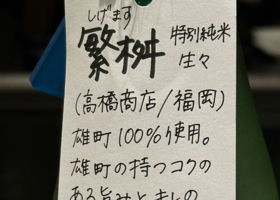 しげます
繁桝 特別純米
生々
(高橋商店/福岡)
雄町100%使用。
雄町の持つコクの
ある旨みと